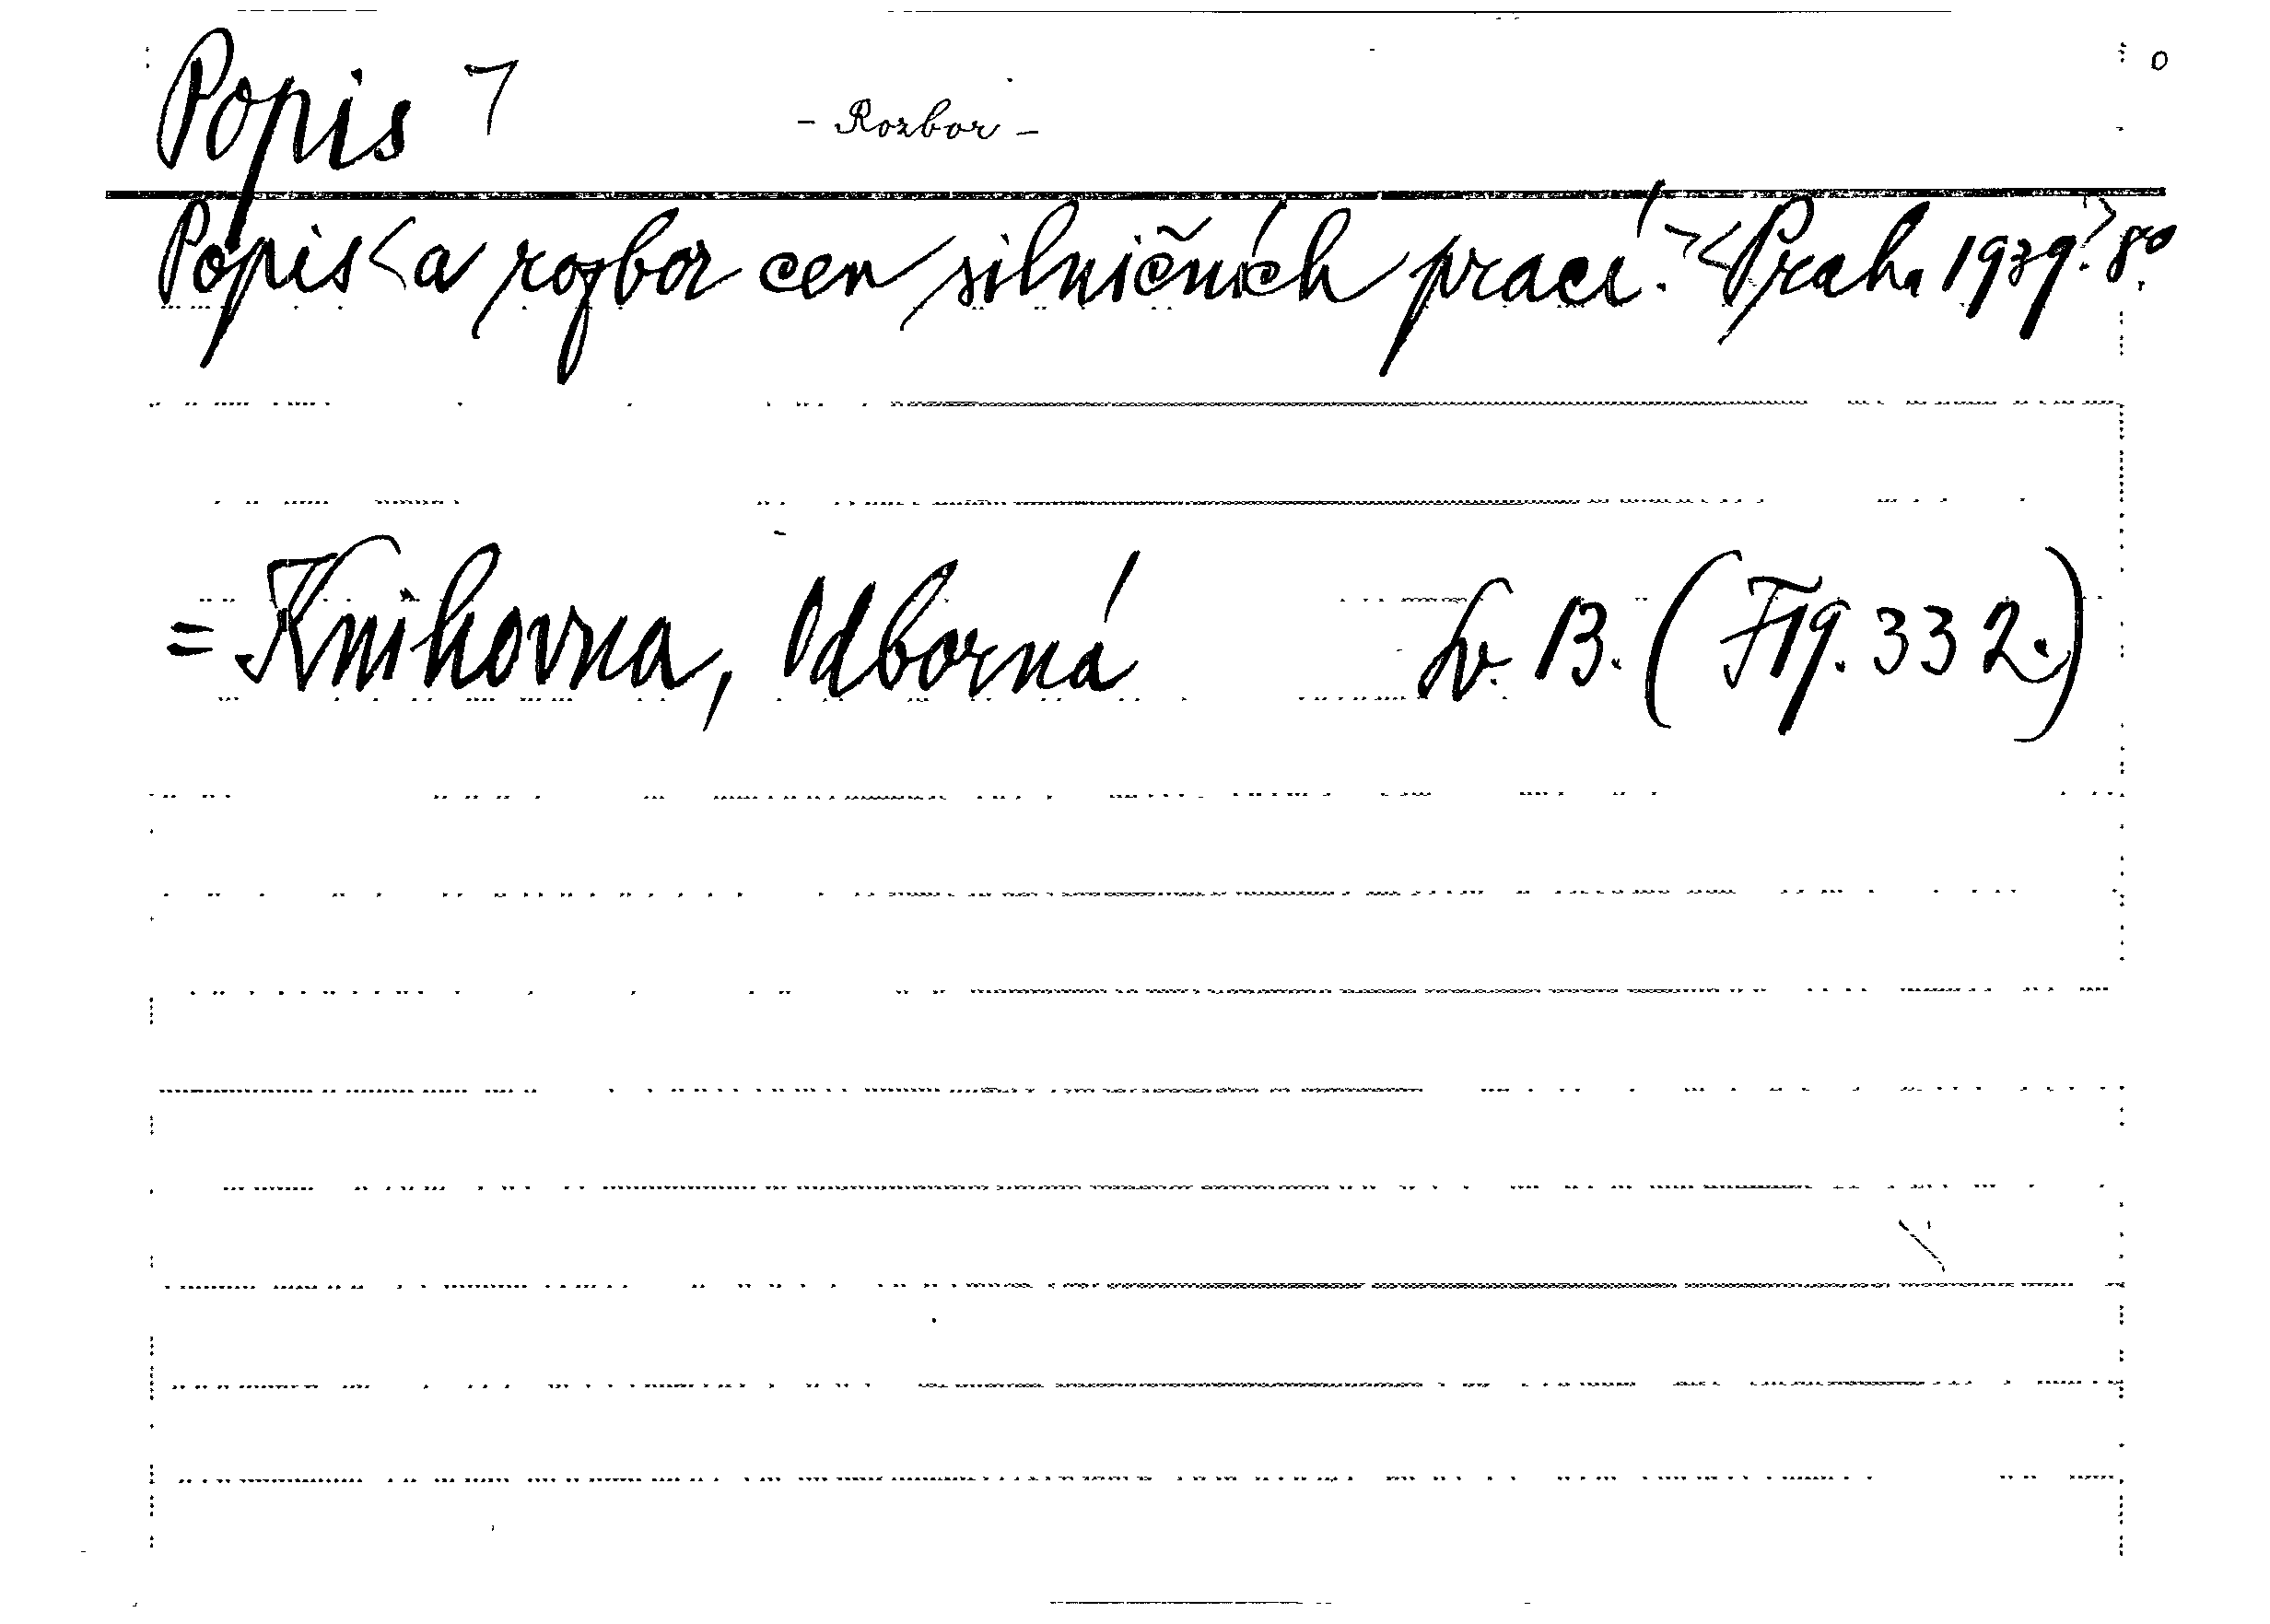 Popis 7 - Rozbor -
Popis < a rozbor cen silničních prací. > < Praha 1939. > 8°.
= Knihovna, Odborná sv. 13. (Fig. 332.)